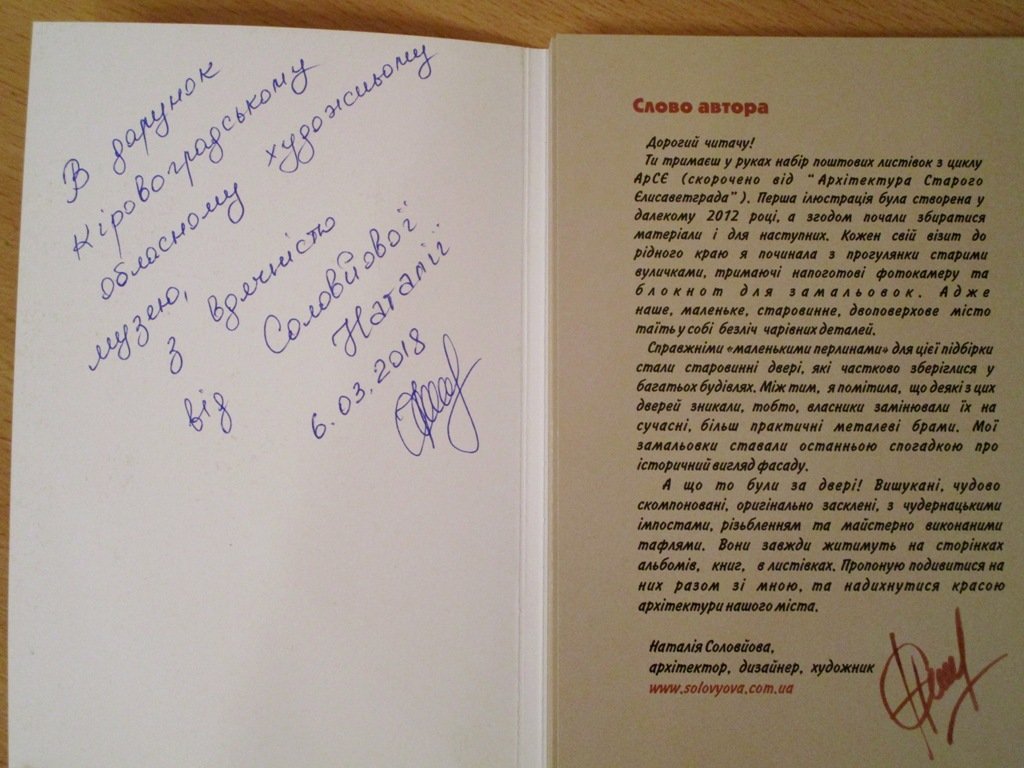 В дарунок
Кіровоградському
обласному художньому
музею,
З вдячністю
від Соловйової
Наталії
6.03.2018
Слово автора
Дорогий читачу!
Ти тримаєш у руках набір поштових листівок з циклу
АрСЄ (скорочено від "Архітектура Старого
Єлисаветграда"). Перша ілюстрація була створена у
далекому 2012 році, а згодом почали збиратися
матеріали і для наступних. Кожен свій візит до
рідного краю я починала з прогулянки старими
вуличками, тримаючі напоготові фотокамеру та
блокнот для замальовок. Адже
наше, маленьке, старовинне, двоповерхове місто
таїть у собі безліч чарівних деталей.
Справжніми «маленькими перлинами» для цієї підбірки
стали старовинні двері, які частково збереглися у
багатьох будівлях. Між тим, я помітила, що деякі з цих
дверей зникали, тобто, власники замінювали їх на
сучасні, більш практичні металеві брами. Мої
замальовки ставали останньою спогадкою про
історичний вигляд фасаду.
А що то були за двері! Вишукані, чудово
скомпоновані, оригінально засклені, з чудернацькими
імпостами, різьбленням та майстерно виконаними
тафлями. Вони завжди житимуть на сторінках
альбомів, книг, в листівках. Пропоную подивитися на
них разом зі мною, та надихнутися красою
архітектури нашого міста.
Наталія Соловйова,
архітектор, дизайнер, художник
www.solovyova.com.ua